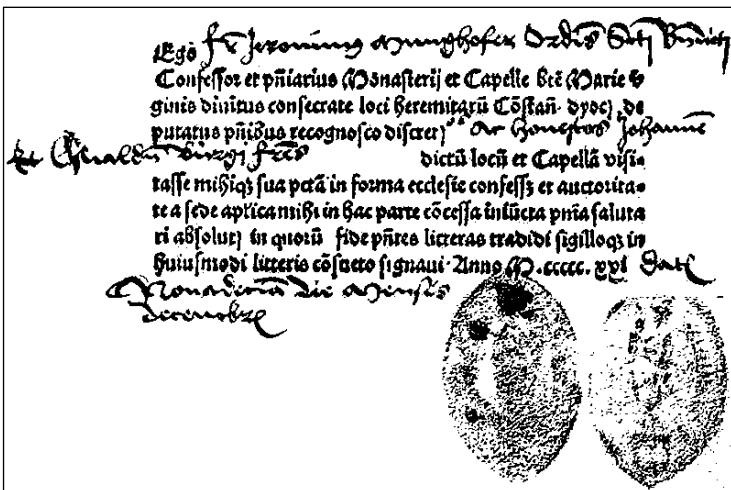 Ego fr Jeronimus Munghofer Ordīs Scti Bn̄dicti
Confessor et pn̄iarius Monasterij et Capelle btē Marie v
ginis diuinitus consecrate loci heremitarū Cōstan̄. dyoc) de
putatus pn̄ibus recognosco discret) ac honestos Johannē
et Oswaldū Burgi frēs dictū locū et Capellā visi-
tasse mihiqȝ sua pctā in forma ecclesie confessȝ et auctorita-
te a sede aplica mihi in hac parte cōcessa iniūcta pnīa saluta
ri absolut) in quorū fide pn̄tes litteras tradidi sigilloqȝ in
huiusmodi litteris cōsueto signaui. Anno M.ccccc.xxi dat
die Mensis
decembr